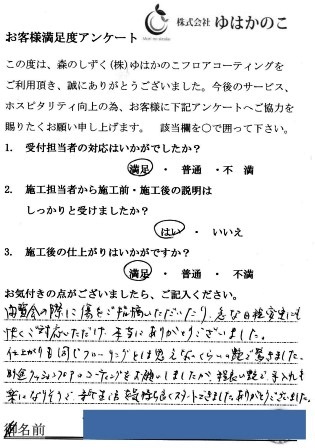 株式会社 ゆはかのこ
お客様満足度アンケート
この度は、森のしずく(株)ゆはかのこフロアコーティングを
ご利用頂き、誠にありがとうございました。今後のサービス、
ホスピタリティ向上の為、お客様に下記アンケートへご協力を
賜りたくお願い申し上げます。 該当欄を○で囲って下さい。
1. 受付担当者の対応はいかがでしたか?
満足 ・ 普通 ・不 満
2. 施工担当者から施工前・施工後の説明は
しっかりと受けましたか?
はい ・ いいえ
3. 施工後の仕上がりはいかがですか?
満足 ・ 普通 ・ 不満
お気付きの点がございましたら、ご記入ください。
内覧会の際に傷をご指摘いただいたり、急な日程変更にも
快くご対応いただけ、本当にありがとうございました。
仕上がりも同じフローリングとは思えないくらいの艶で驚きました。
別途クッションフロアのコーティングをお願いしましたが、程良い艶で、手入れも
楽になりそうで、新生活を気持ち良くスタートできました。ありがとうございました。
名前